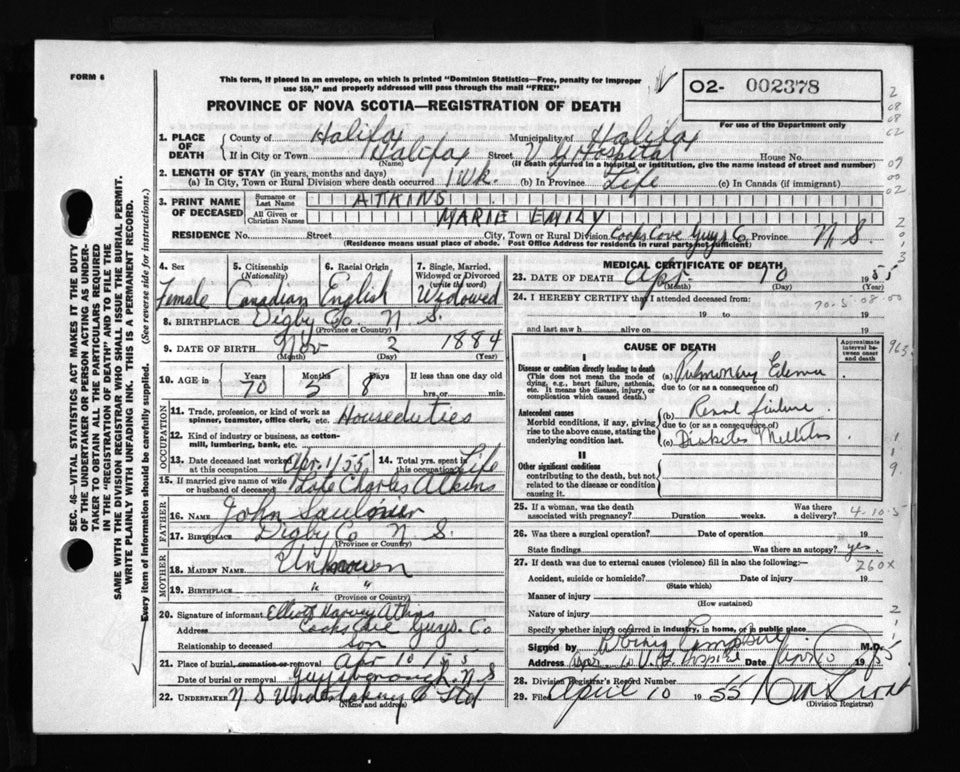 FORM 6
This form, if placed in an envelope, on which is printed "Dominion Statistics—Free, penalty for improper
use $50," and properly addressed will pass through the mail "FREE"
PROVINCE OF NOVA SCOTIA—REGISTRATION OF DEATH
O2- 002378
For use of the Department only
SEC. 46—VITAL STATISTICS ACT MAKES IT THE DUTY
OF THE UNDERTAKER OR PERSON ACTING AS UNDER-
TAKER TO OBTAIN ALL THE PARTICULARS REQUIRED
IN THE "REGISTRATION OF DEATH" AND TO FILE THE
SAME WITH THE DIVISION REGISTRAR WHO SHALL ISSUE THE BURIAL PERMIT.
WRITE PLAINLY WITH UNFADING INK. THIS IS A PERMANENT RECORD.
Every item of information should be carefully supplied. (See reverse side for instructions.)
1. PLACE OF DEATH County of Halifax Municipality of Halifax
If in City or Town Halifax Street V G Hospital House No.
(Name) (If death occurred in a hospital or institution, give the name instead of street and number)
2. LENGTH OF STAY (in years, months and days)
(a) In City, Town or Rural Division where death occurred 1 wk. (b) In Province Life (c) In Canada (if immigrant)
3. PRINT NAME OF DECEASED Surname or Last Name ATKINS
All Given or Christian Names MARIE EMILY
RESIDENCE House No. Street City, Town or Rural Division Cooks Cove Guys Co Province N S.
(Residence means usual place of abode. Post Office Address for residents in rural parts not sufficient)
4. Sex Female
5. Citizenship (Nationality) Canadian
6. Racial Origin English
7. Single, Married, Widowed or Divorced (write the word) Widowed
8. BIRTHPLACE Digby Co N S.
(Province or Country)
9. DATE OF BIRTH Nov 2 1884
(Month) (Day) (Year)
10. AGE in Years 70 Months 5 Days 8 If less than one day old hrs. or min.
OCCUPATION
11. Trade, profession, or kind of work as spinner, teamster, office clerk, etc. Houseduties
12. Kind of industry or business, as cotton-mill, lumbering, bank, etc.
13. Date deceased last worked at this occupation Apr. 1/55 14. Total yrs. spent in this occupation Life
15. If married give name of wife or husband of deceased Late Charles Atkins
FATHER
16. NAME John Saulnier
17. BIRTHPLACE Digby Co N S.
(Province or Country)
MOTHER
18. MAIDEN NAME Unknown
19. BIRTHPLACE " "
(Province or Country)
20. Signature of informant Elliott Harvey Atkins
Address Cooks Cove Guys. Co
Relationship to deceased son
21. Place of burial, cremation or removal Apr 10/55
Date of burial or removal Guysborough. N S
22. UNDERTAKER N S Undertaking Co Ltd
(Name and address)
MEDICAL CERTIFICATE OF DEATH
23. DATE OF DEATH Apr 10 1955
(Month) (Day)
24. I HEREBY CERTIFY that I attended deceased from:
19 to 19
and last saw h alive on 19
CAUSE OF DEATH
Approximate interval between onset and death
I
Disease or condition directly leading to death
(This does not mean the mode of dying, e.g., heart failure, asthenia, etc. It means the disease, injury, or complication which caused death.)
(a) Pulmonary Edema
due to (or as a consequence of)
Antecedent causes
Morbid conditions, if any, giving rise to the above cause, stating the underlying condition last.
(b) Renal failure
due to (or as a consequence of)
(c) Diabetes Mellitus
II
Other significant conditions
contributing to the death, but not related to the disease or condition causing it.
25. If a woman, was the death associated with pregnancy? Duration weeks. Was there a delivery?
26. Was there a surgical operation? Date of operation 19
State findings Was there an autopsy? yes.
27. If death was due to external causes (violence) fill in also the following:—
260X
Accident, suicide or homicide? Date of injury 19
(State which)
Manner of injury
(How sustained)
Nature of injury
Specify whether injury occurred in industry, in home, or in public place
Signed by M.D.
Address V. G. Hospital Date Apr 10 1955
28. Division Registrar's Record Number
29. Filed April 10 1955
(Division Registrar)